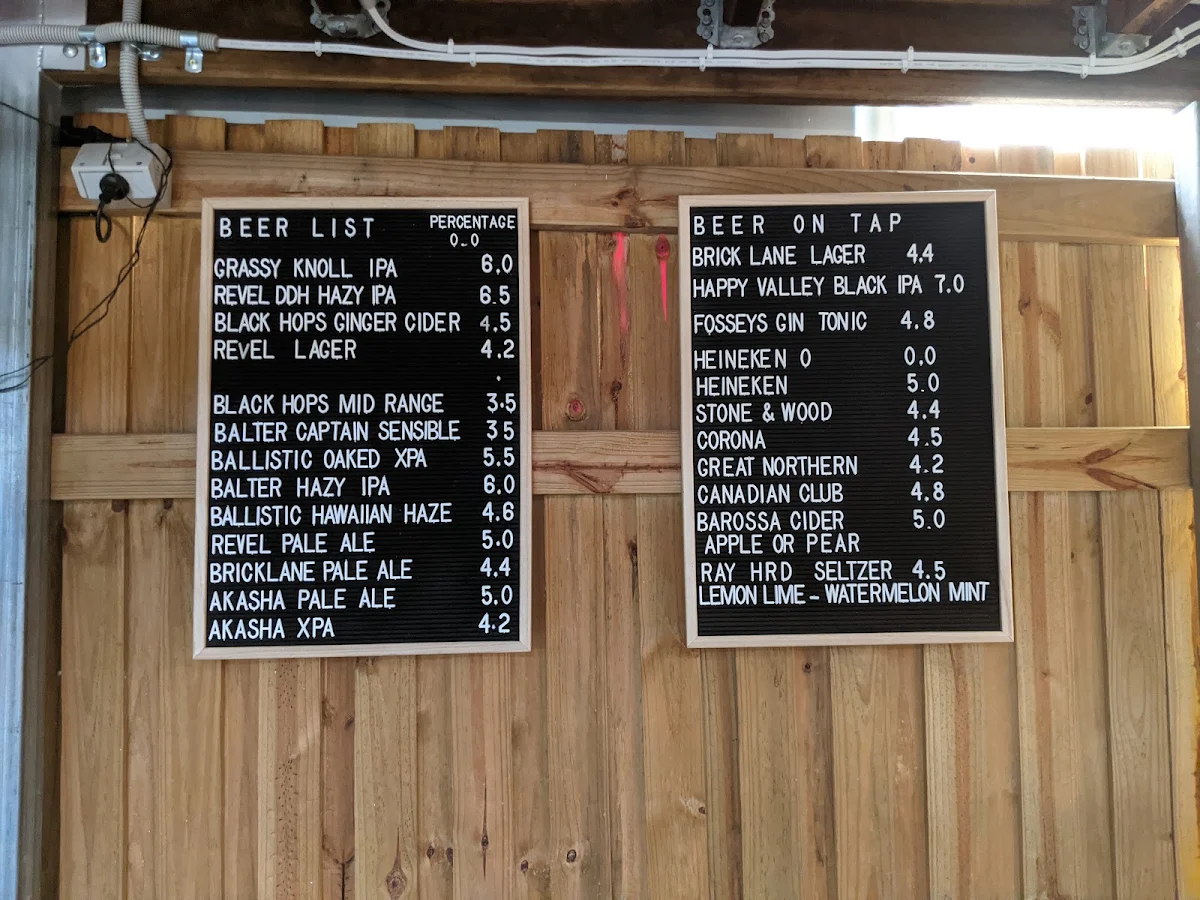 BEER LIST PERCENTAGE
0.0
GRASSY KNOLL IPA 6.0
REVEL DDH HAZY IPA 6.5
BLACK HOPS GINGER CIDER 4.5
REVEL LAGER 4.2
.
BLACK HOPS MID RANGE 3.5
BALTER CAPTAIN SENSIBLE 3 5
BALLISTIC OAKED XPA 5.5
BALTER HAZY IPA 6.0
BALLISTIC HAWAIIAN HAZE 4.6
REVEL PALE ALE 5.0
BRICKLANE PALE ALE 4.4
AKASHA PALE ALE 5.0
AKASHA XPA 4.2
BEER ON TAP
BRICK LANE LAGER 4.4
HAPPY VALLEY BLACK IPA 7.0
FOSSEYS GIN TONIC 4.8
HEINEKEN 0 0.0
HEINEKEN 5.0
STONE & WOOD 4.4
CORONA 4.5
GREAT NORTHERN 4.2
CANADIAN CLUB 4.8
BAROSSA CIDER 5.0
APPLE OR PEAR
RAY HRD SELTZER 4.5
LEMON LIME - WATERMELON MINT